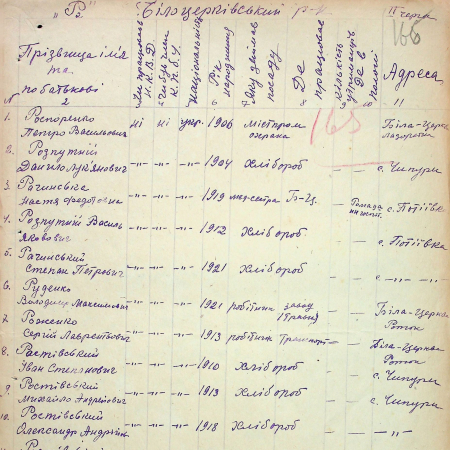 „Р"
Білоцерківський р-н
II черга
166
№
Прізвище ім'я
та
по батькові
Чи працював
Н.К.В.Д.
Чи був член
К.П.б.У.
Національність
Рік
народження
Яку займав
посаду
Де
працював
Кількість
Де в
полоні
Адреса
2 6 7 8 9 10 11
163
1. Роспоренко
Петро Васильович ні ні укр. 1906 Містпром охрана Біла-Церква
2. Розпутній
Данило Лук'янович -"- -"- -"- 1904 Хлібороб — — с. Чипури
3. Рогинська
Настя Федотовна -"- -"- -"- 1919 мед-сестра Б-Ц. — с. Потіївка
4. Розпутній Василь
Якович -"- -"- -"- 1912 Хлібороб — — с. Потіївка
5. Рачинський
Степан Петрович -"- -"- -"- 1921 Хлібороб — — с. -"-
6. Руденко
Володимир Максимович -"- -"- -"- 1921 робітник завод — — Біла-Церква
Роток
7. Роженко
Сергій Лаврентович -"- -"- -"- 1913 робітник Транспорт — — Біла-Церква
Роток
8. Растівський
Иван Степанович -"- -"- -"- 1910 Хлібороб — — с. Чипури
9. Ростівський
Михайло Андрейович -"- -"- -"- 1913 Хлібороб — — с. Чипури
10. Ростівський
Олександр -"- -"- -"- 1918 Хлібороб — — -"-